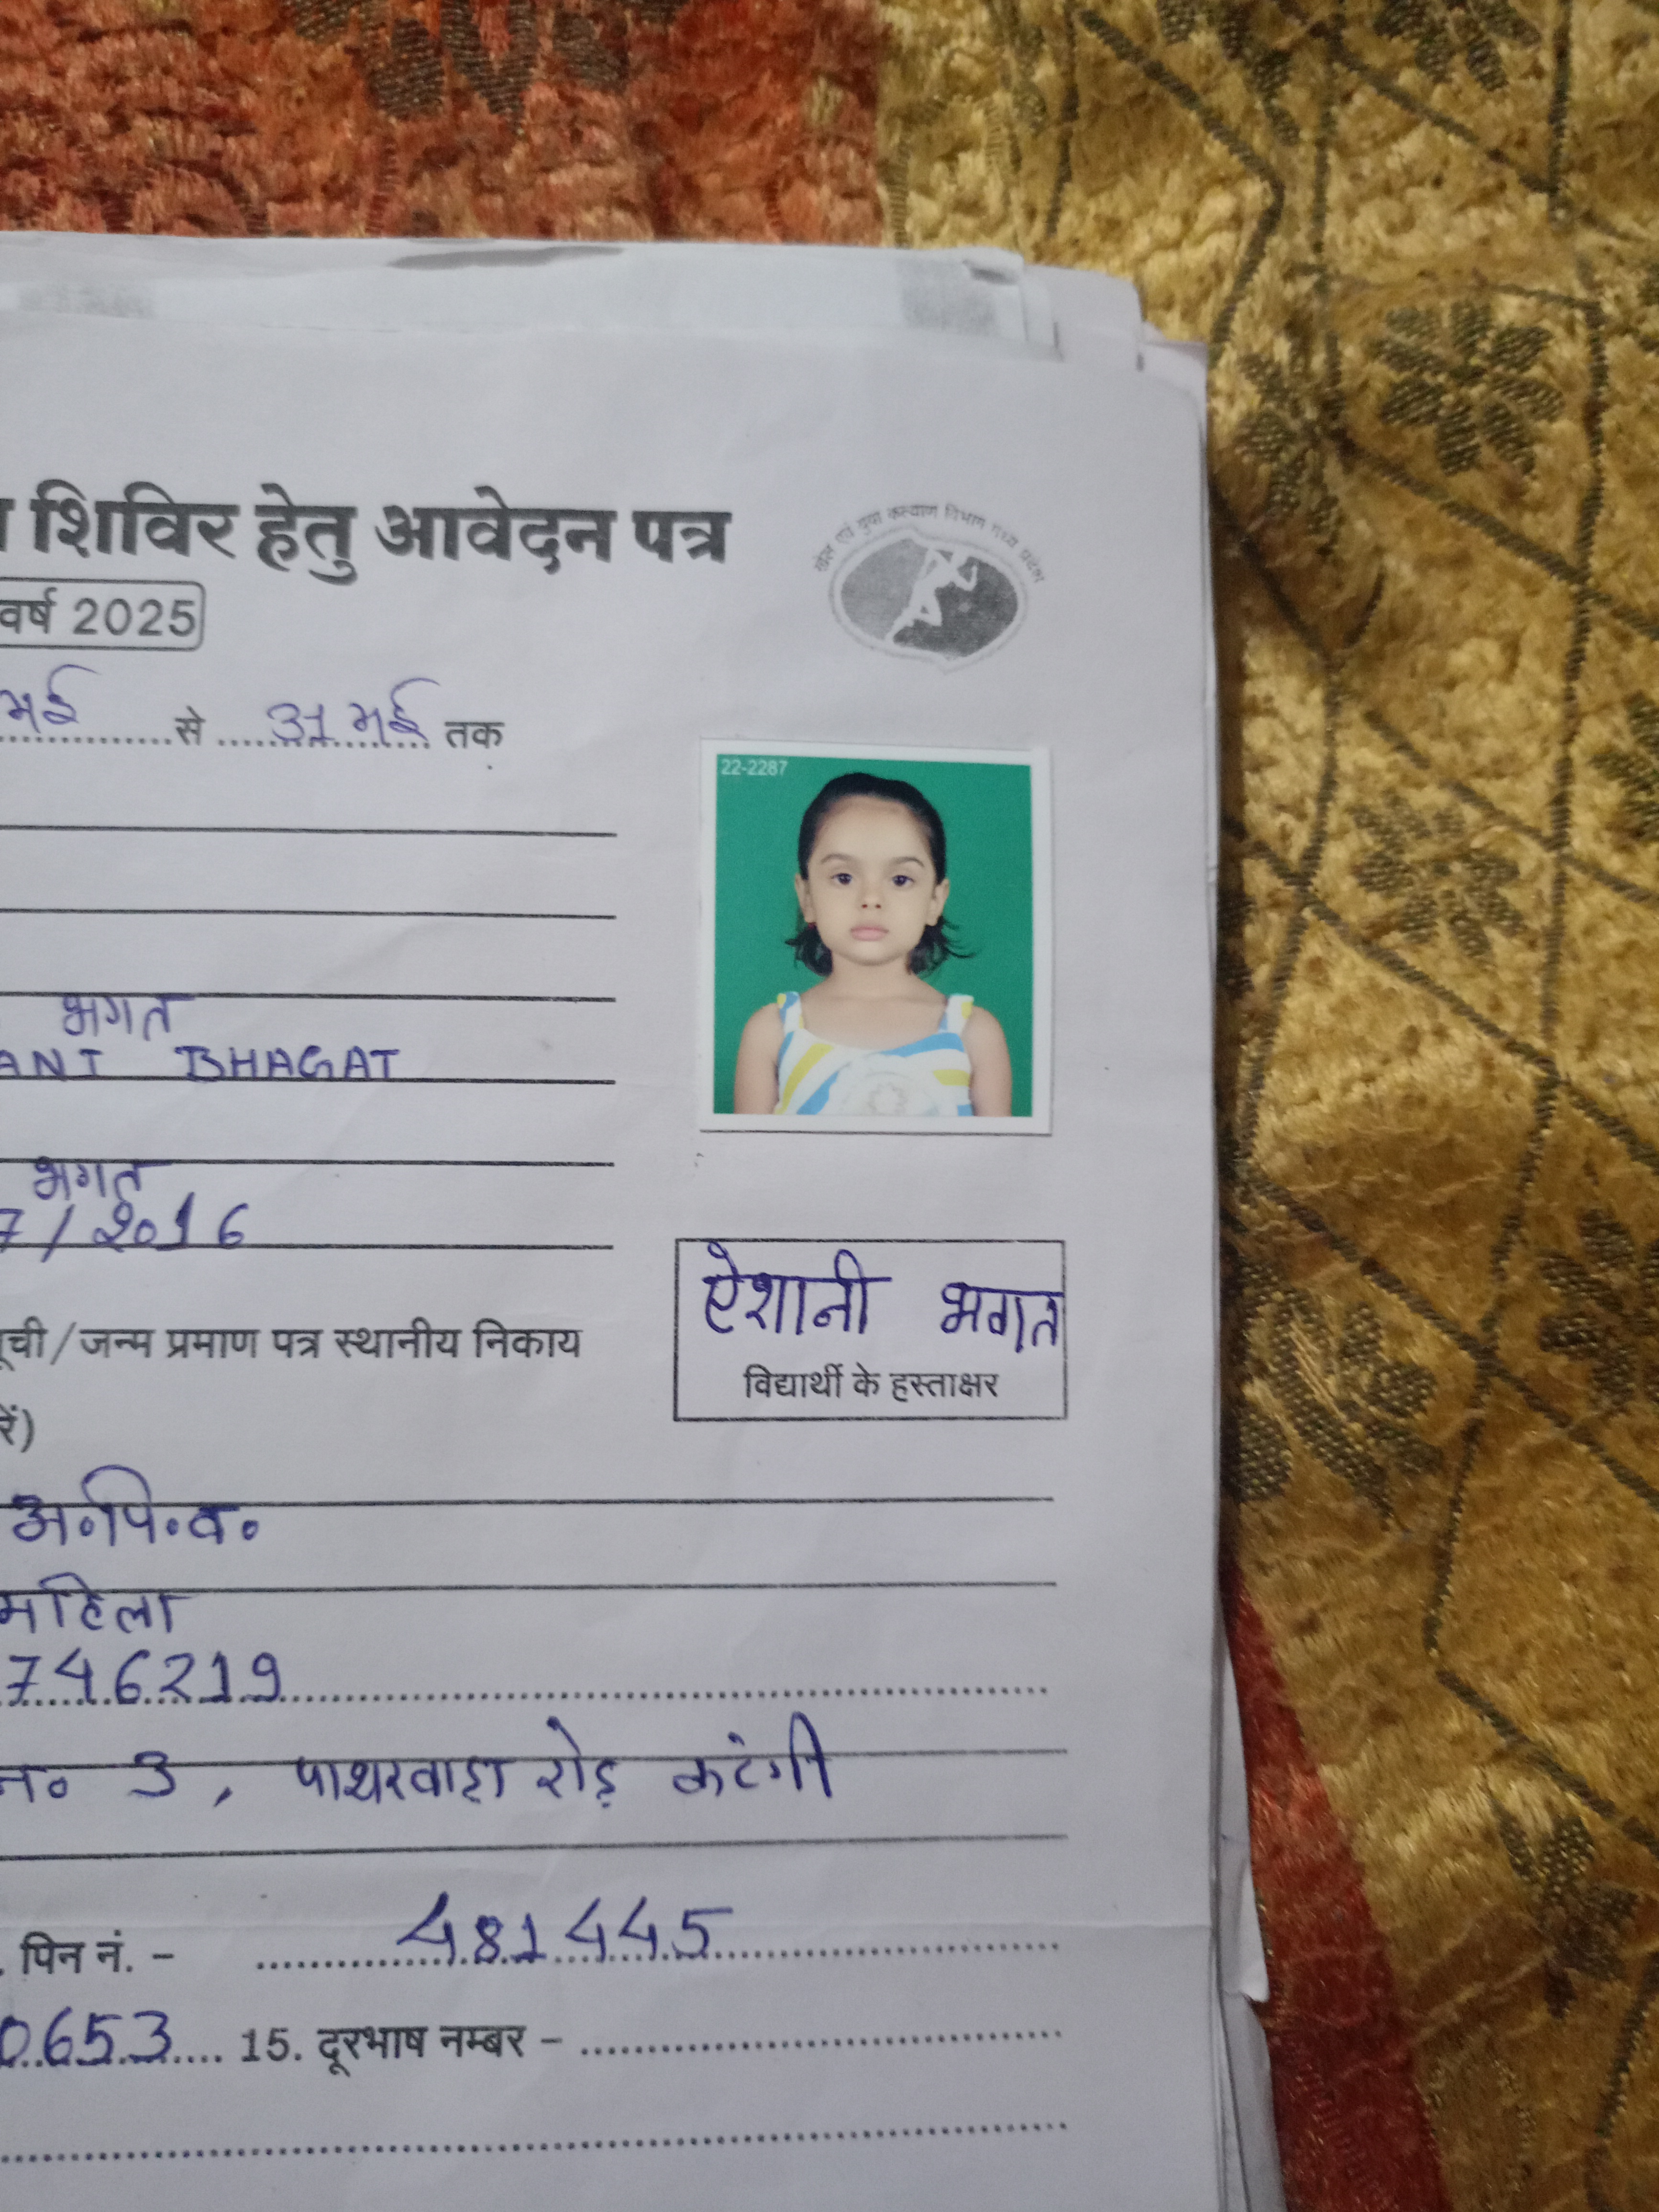 शिविर हेतु आवेदन पत्र
खेल एवं युवा कल्याण विभाग मध्य प्रदेश
वर्ष 2025
मई से 31 मई तक
22-2287
भगत
ANI BHAGAT
भगत
7/2016
ऐशानी भगत
विद्यार्थी के हस्ताक्षर
सूची/जन्म प्रमाण पत्र स्थानीय निकाय
रें)
अ.पि.व.
महिला
746219
नं० 3, पाथरवाड़ा रोड़ कटंगी
पिन नं. - 481445
0653 15. दूरभाष नम्बर -